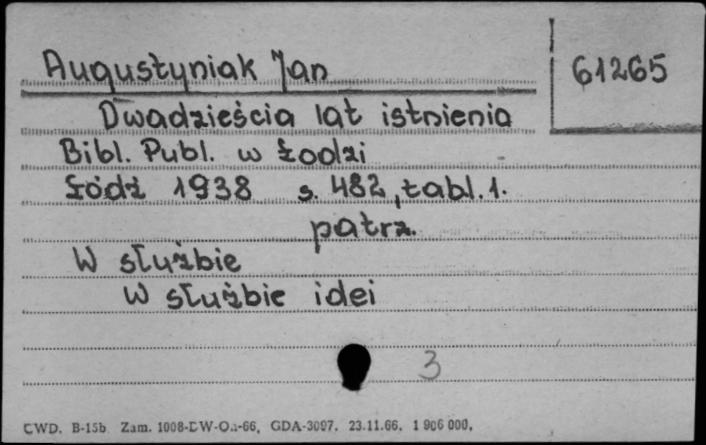 Augustyniak Jan
61265
Dwadzieścia lat istnienia
Bibl. Publ. w Łodzi
Łódź 1938 s. 482, tabl. 1.
patrz.
W służbie
W służbie idei
3
CWD. B-15b Zam. 1008-DW-On-66, GDA-3097. 23.11.66. 1 906 000.